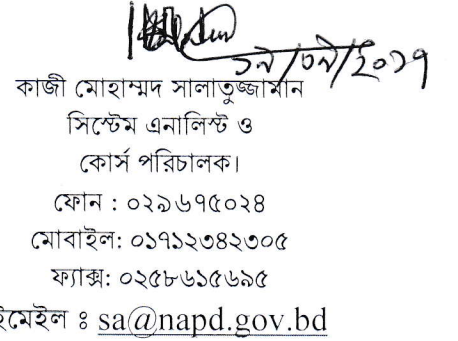 ১৯/০৯/২০১৭
কাজী মোহাম্মদ সালাতুজ্জামান
সিস্টেম এনালিস্ট ও
কোর্স পরিচালক।
ফোন : ০২৯৬৭৫০২৪
মোবাইল: ০১৭১২৩৪২৩০৫
ফ্যাক্স: ০২৫৮৬১৫৬৯৫
ইমেইল ঃ sa@napd.gov.bd